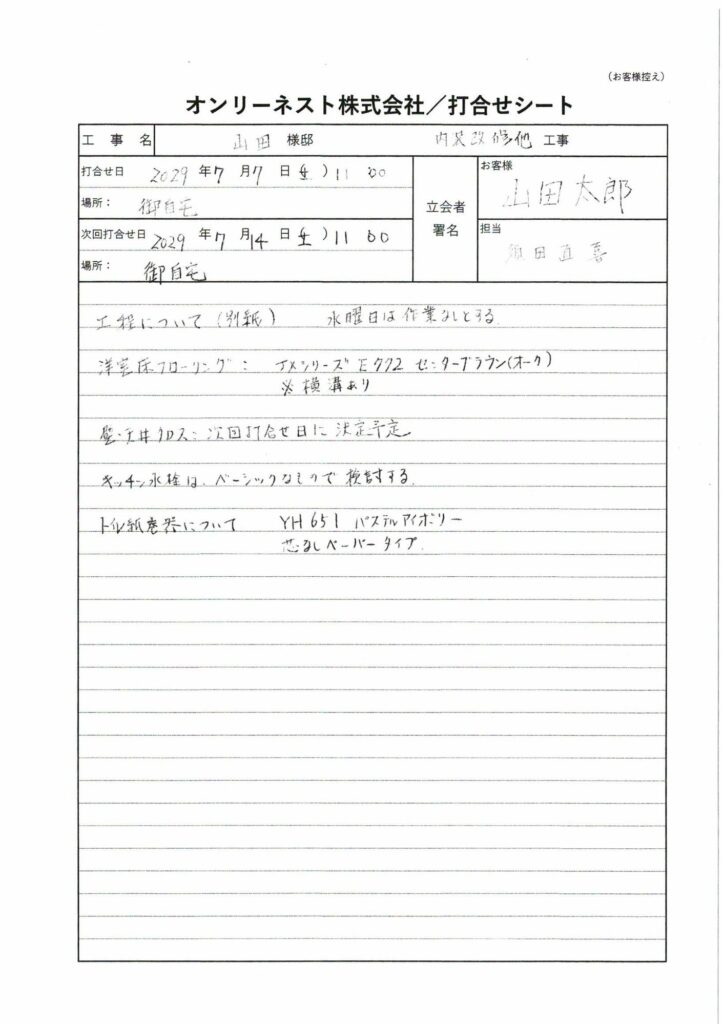 (お客様控え)
オンリーネスト株式会社/打合せシート
工事名 山田 様邸 内装改修他 工事
打合せ日 2029年7月7日(土)11 00
場所: 御自宅
次回打合せ日 2029年7月14日(土)11 00
場所: 御自宅
立会者
署名
お客様
山田太郎
担当
田直喜
工程について(別紙) 水曜日は作業なしとする。
洋室床フローリング: JXシリーズ E772 センターブラウン(オーク)
※横溝あり
壁・天井クロス:次回打合せ日に決定予定
キッチン水栓は、ベーシックなもので検討する。
トイレ紙巻器について YH651 パステルアイボリー
芯なしペーパータイプ.